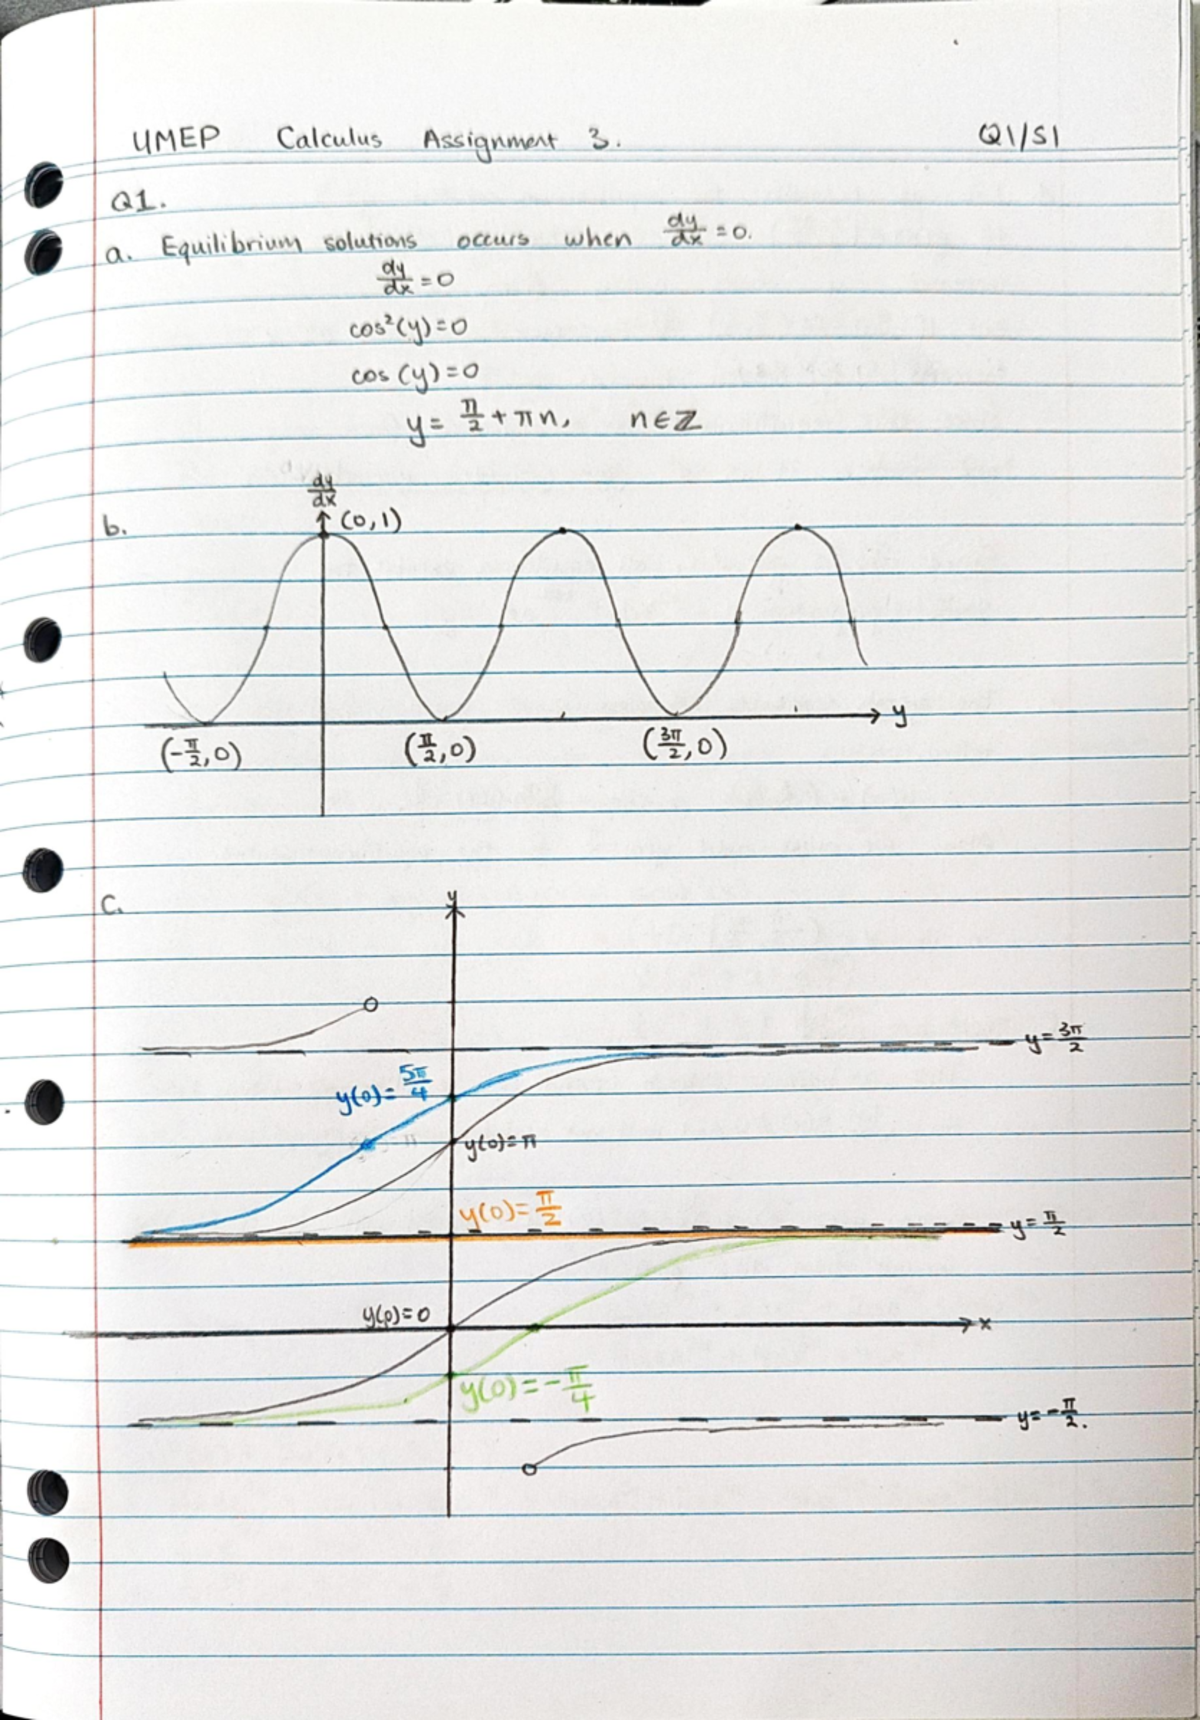 UMEP Calculus Assignment 3. Q1/S1
Q1.
a. Equilibrium solutions occurs when dy/dx = 0.
dy/dx = 0
cos²(y) = 0
cos (y) = 0
y = π/2 + πn, n ∈ ℤ
b.
dy/dx
(0,1)
y
(-π/2, 0) (π/2, 0) (3π/2, 0)
c.
y
y = 3π/2
y(0) = 5π/4
y(0) = π
y(0) = π/2
y = π/2
y(0) = 0
x
y(0) = -π/4
y = -π/2.